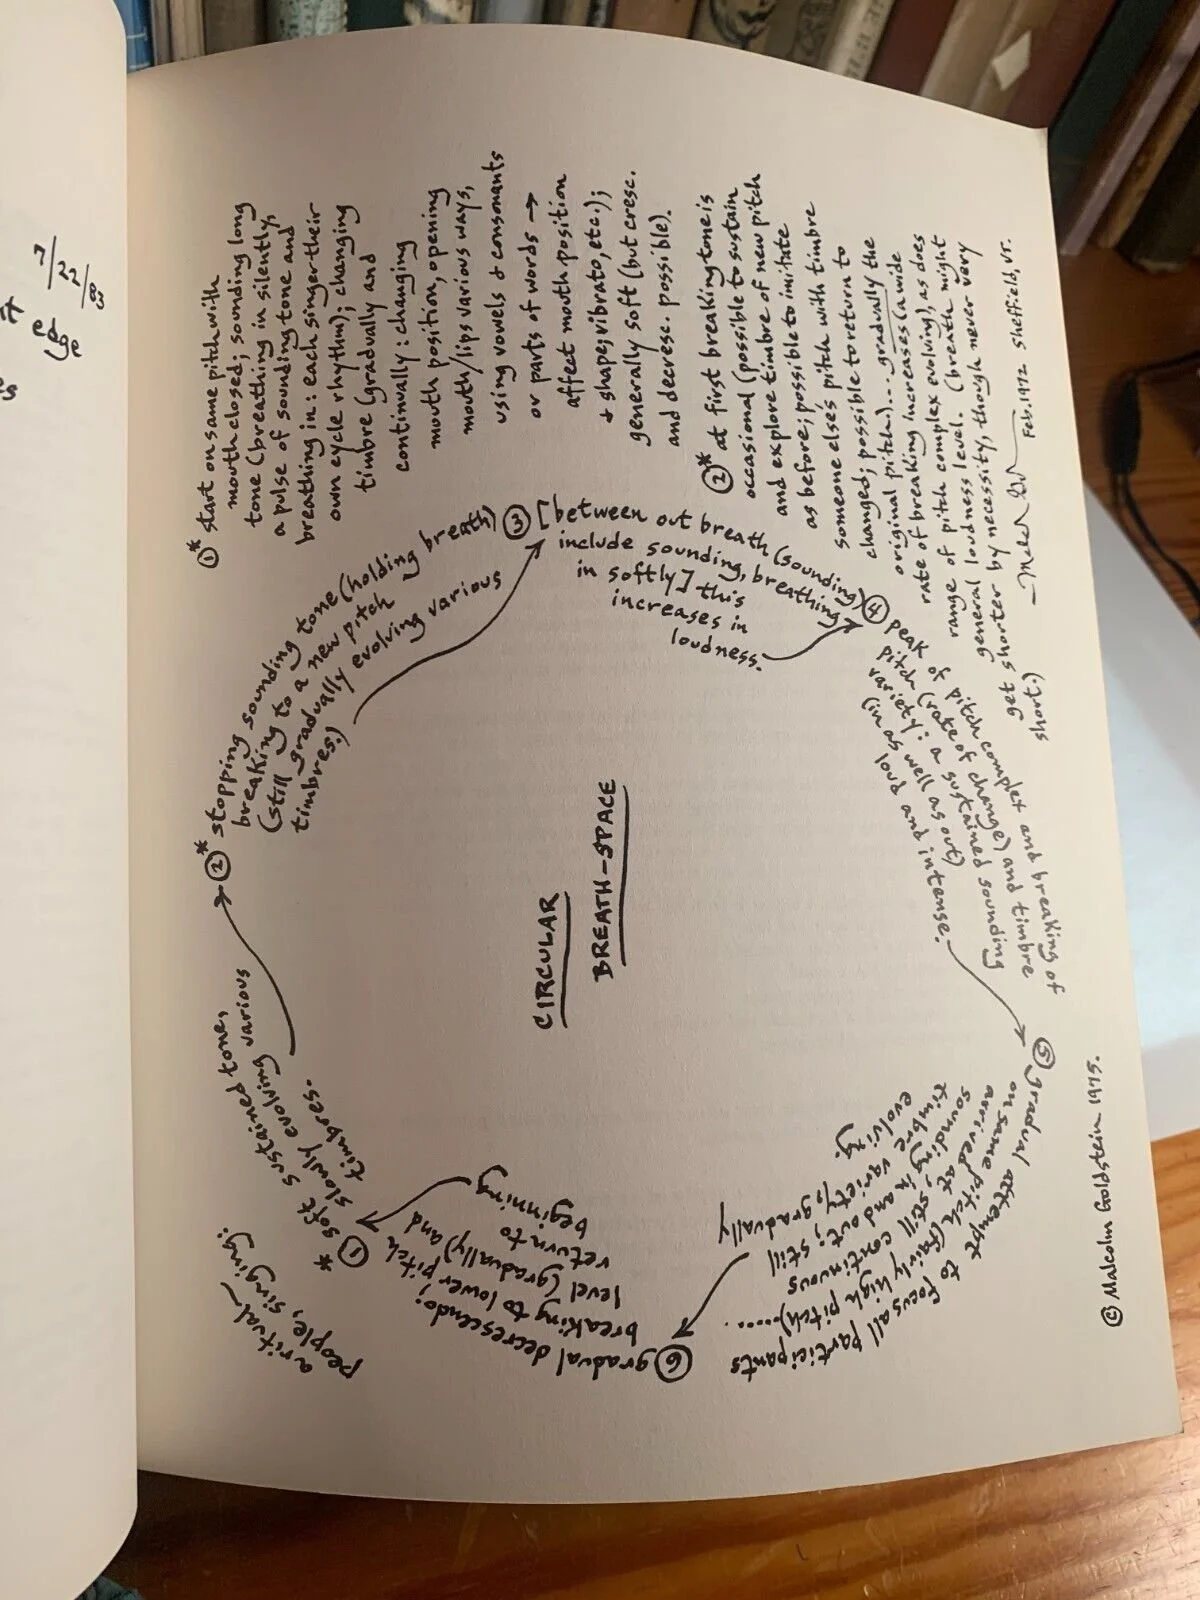 7/22/83
edge
a ritual—
people, singing:
CIRCULAR
BREATH-SPACE
*
① soft sustained tone,
slowly evolving various
timbres.
②* stopping sounding tone (holding breath)
breaking to a new pitch
(still gradually evolving various
timbres.)
③ [between out breath (sounding)
include sounding, breathing
in softly] this
increases in
loudness.
④ peak of pitch complex and breaking of
pitch (rate of change) and timbre
variety: a sustained sounding
(in as well as out)
loud and intense.
⑤ gradual attempt to focus all participants
on same pitch (fairly high pitch).....
arrived at
sounding, still continuous
in and out; still
timbre variety, gradually
evolving.
⑥ gradual decrescendo;
breaking to lower pitch
level (gradually) and
return to
beginning
①* start on same pitch with
mouth closed; sounding long
tone (breathing in silently,
a pulse of sounding tone and
breathing in: each singer their
own cycle rhythm); changing
timbre (gradually and
continually: changing
mouth position, opening
mouth/lips various ways,
using vowels & consonants
or parts of words →
affect mouth position
& shape; vibrato, etc.);
generally soft (but cresc.
and decresc. possible).
②* at first breaking tone is
occasional (possible to sustain
and explore timbre of new pitch
as before; possible to imitate
someone else's pitch with timbre
changed; possible to return to
original pitch)... gradually the
rate of breaking increases (a wide
range of pitch complex evolving), as does
general loudness level. (breath might
get shorter by necessity, though never very
short.)
Feb. 1972 Sheffield, VT.
© Malcolm Goldstein 1975.